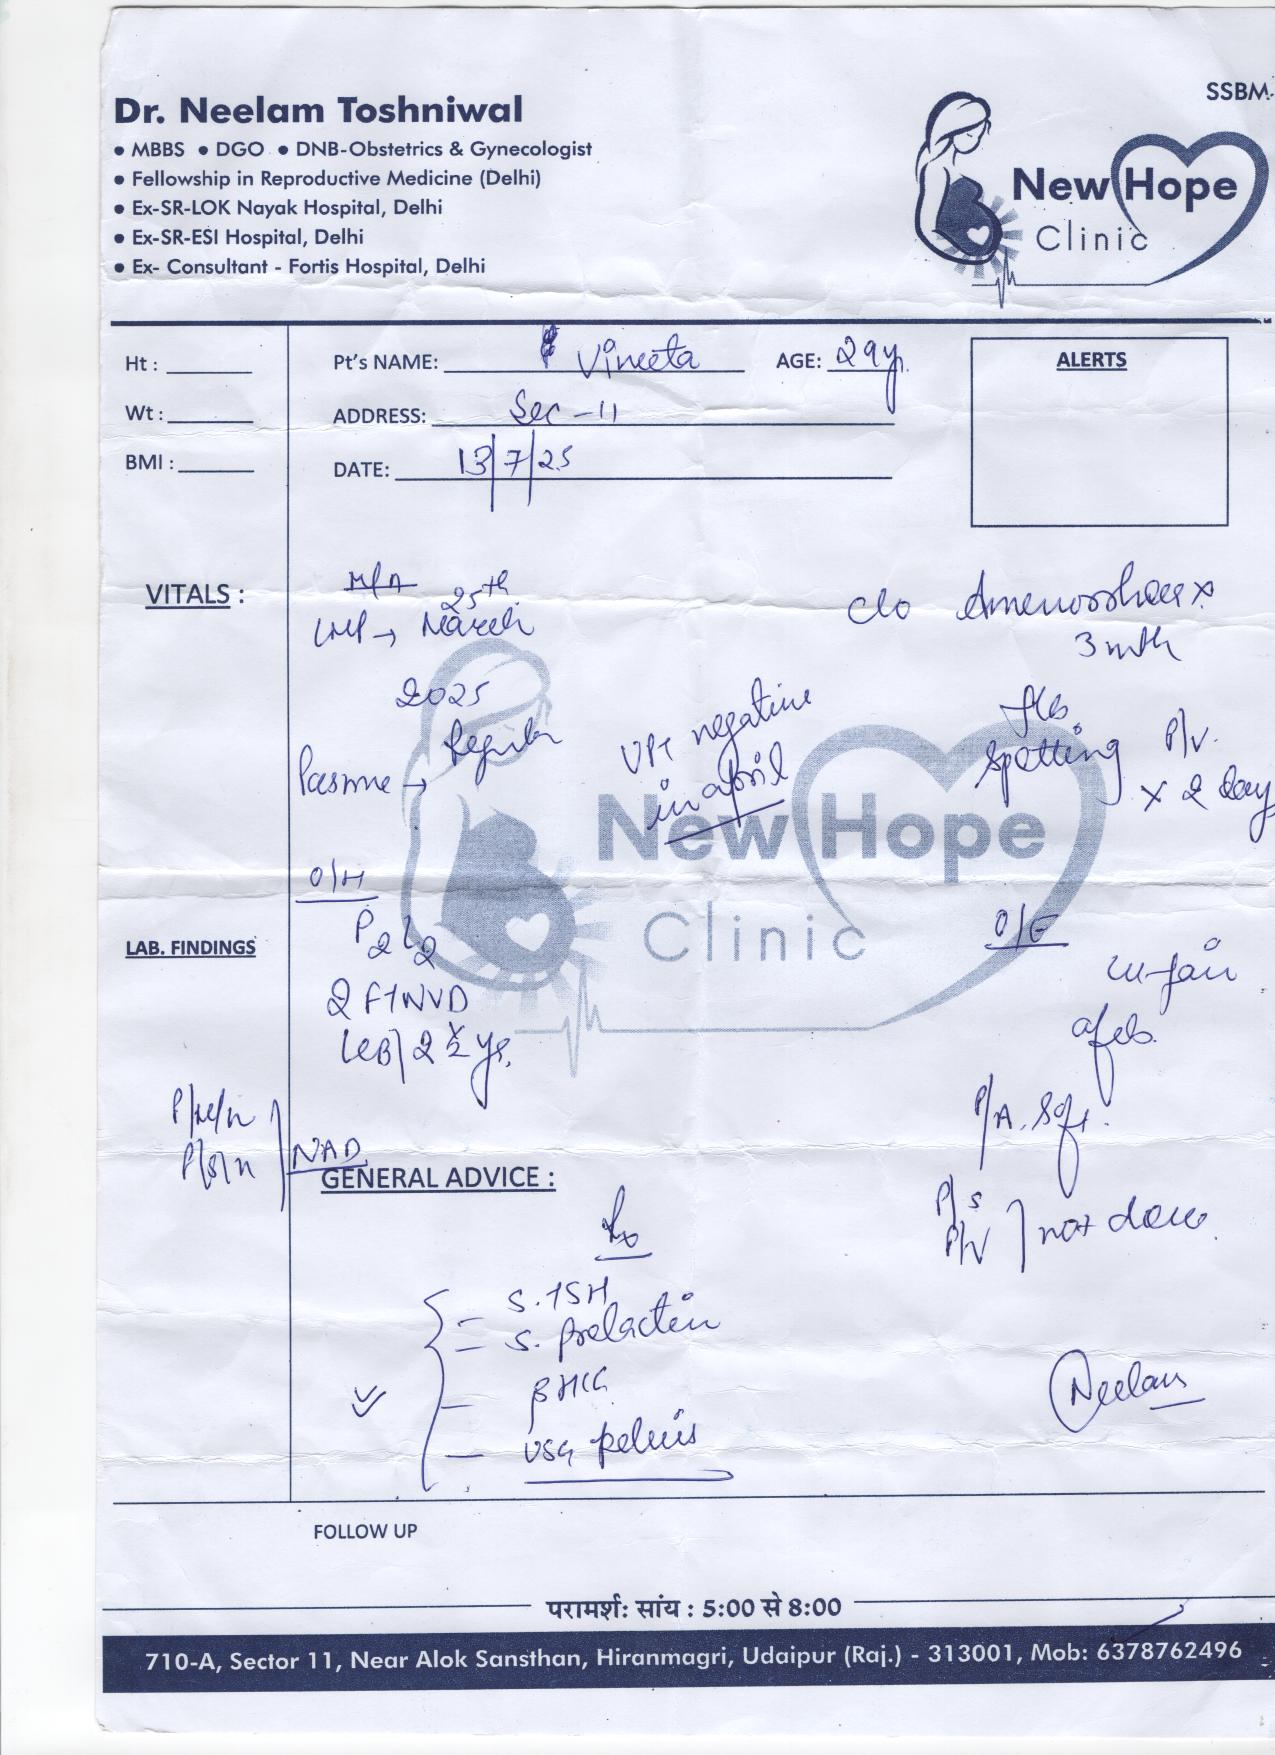 SSBM-
Dr. Neelam Toshniwal
• MBBS • DGO • DNB-Obstetrics & Gynecologist
• Fellowship in Reproductive Medicine (Delhi)
• Ex-SR-LOK Nayak Hospital, Delhi
• Ex-SR-ESI Hospital, Delhi
• Ex- Consultant - Fortis Hospital, Delhi
New Hope
Clinic
Ht :
Wt :
BMI :
Pt's NAME: Vineeta AGE: 29yr.
ADDRESS: Sec-11
DATE: 13/7/25
ALERTS
VITALS :
25th
LMP → March
2025
Regular
c/o Amenorrhoea x
3 mth
UPT negative
in april
spotting P/V.
x 2 day
New Hope
Clinic
O/H
P2L2
2 FTNVD
LCB/2 ½ yr.
LAB. FINDINGS
O/E
afeb.
P/A. Soft.
P/S
P/V } not done
NAD
GENERAL ADVICE :
S. TSH
S. Prolactin
β HCG
USG pelvis
Neelam
FOLLOW UP
परामर्श: सांय : 5:00 से 8:00
710-A, Sector 11, Near Alok Sansthan, Hiranmagri, Udaipur (Raj.) - 313001, Mob: 6378762496